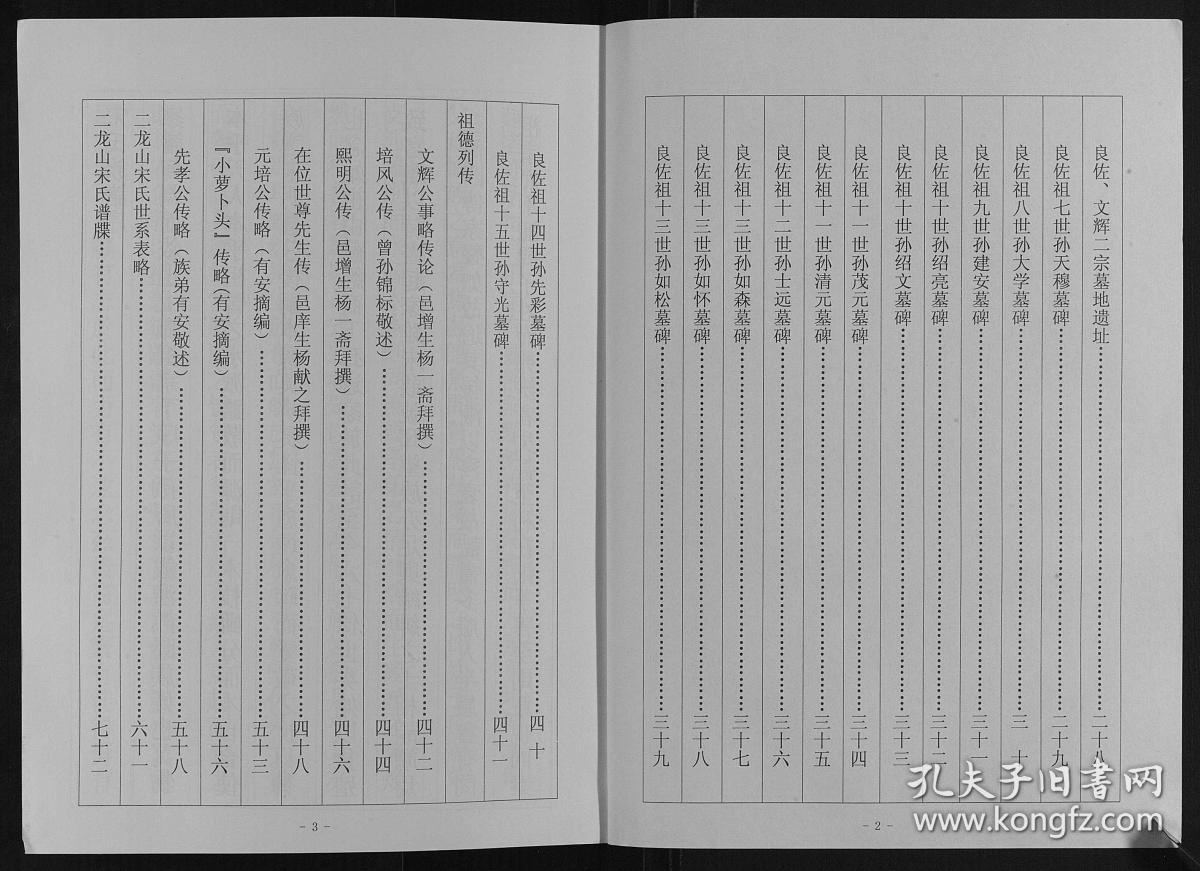 良佐、文辉二宗墓地遗址……二十八
良佐祖七世孙天穆墓碑……二十九
良佐祖八世孙大学墓碑……三 十
良佐祖九世孙建安墓碑……三十一
良佐祖十世孙绍亮墓碑……三十二
良佐祖十世孙绍文墓碑……三十三
良佐祖十一世孙茂元墓碑……三十四
良佐祖十一世孙清元墓碑……三十五
良佐祖十二世孙士远墓碑……三十六
良佐祖十三世孙如森墓碑……三十七
良佐祖十三世孙如怀墓碑……三十八
良佐祖十三世孙如松墓碑……三十九
- 2 -
良佐祖十四世孙先彩墓碑……四 十
良佐祖十五世孙守光墓碑……四十一
祖德列传
文辉公事略传论（邑增生杨一斋拜撰）……四十二
培风公传（曾孙锦标敬述）……四十四
熙明公传（邑增生杨一斋拜撰）……四十六
在位世尊先生传（邑庠生杨献之拜撰）……四十八
元培公传略（有安摘编）……五十三
『小萝卜头』传略（有安摘编）……五十六
先孝公传略（族弟有安敬述）……五十八
二龙山宋氏世系表略……六十一
二龙山宋氏谱牒……七十二
- 3 -
孔夫子旧书网
www.kongfz.com